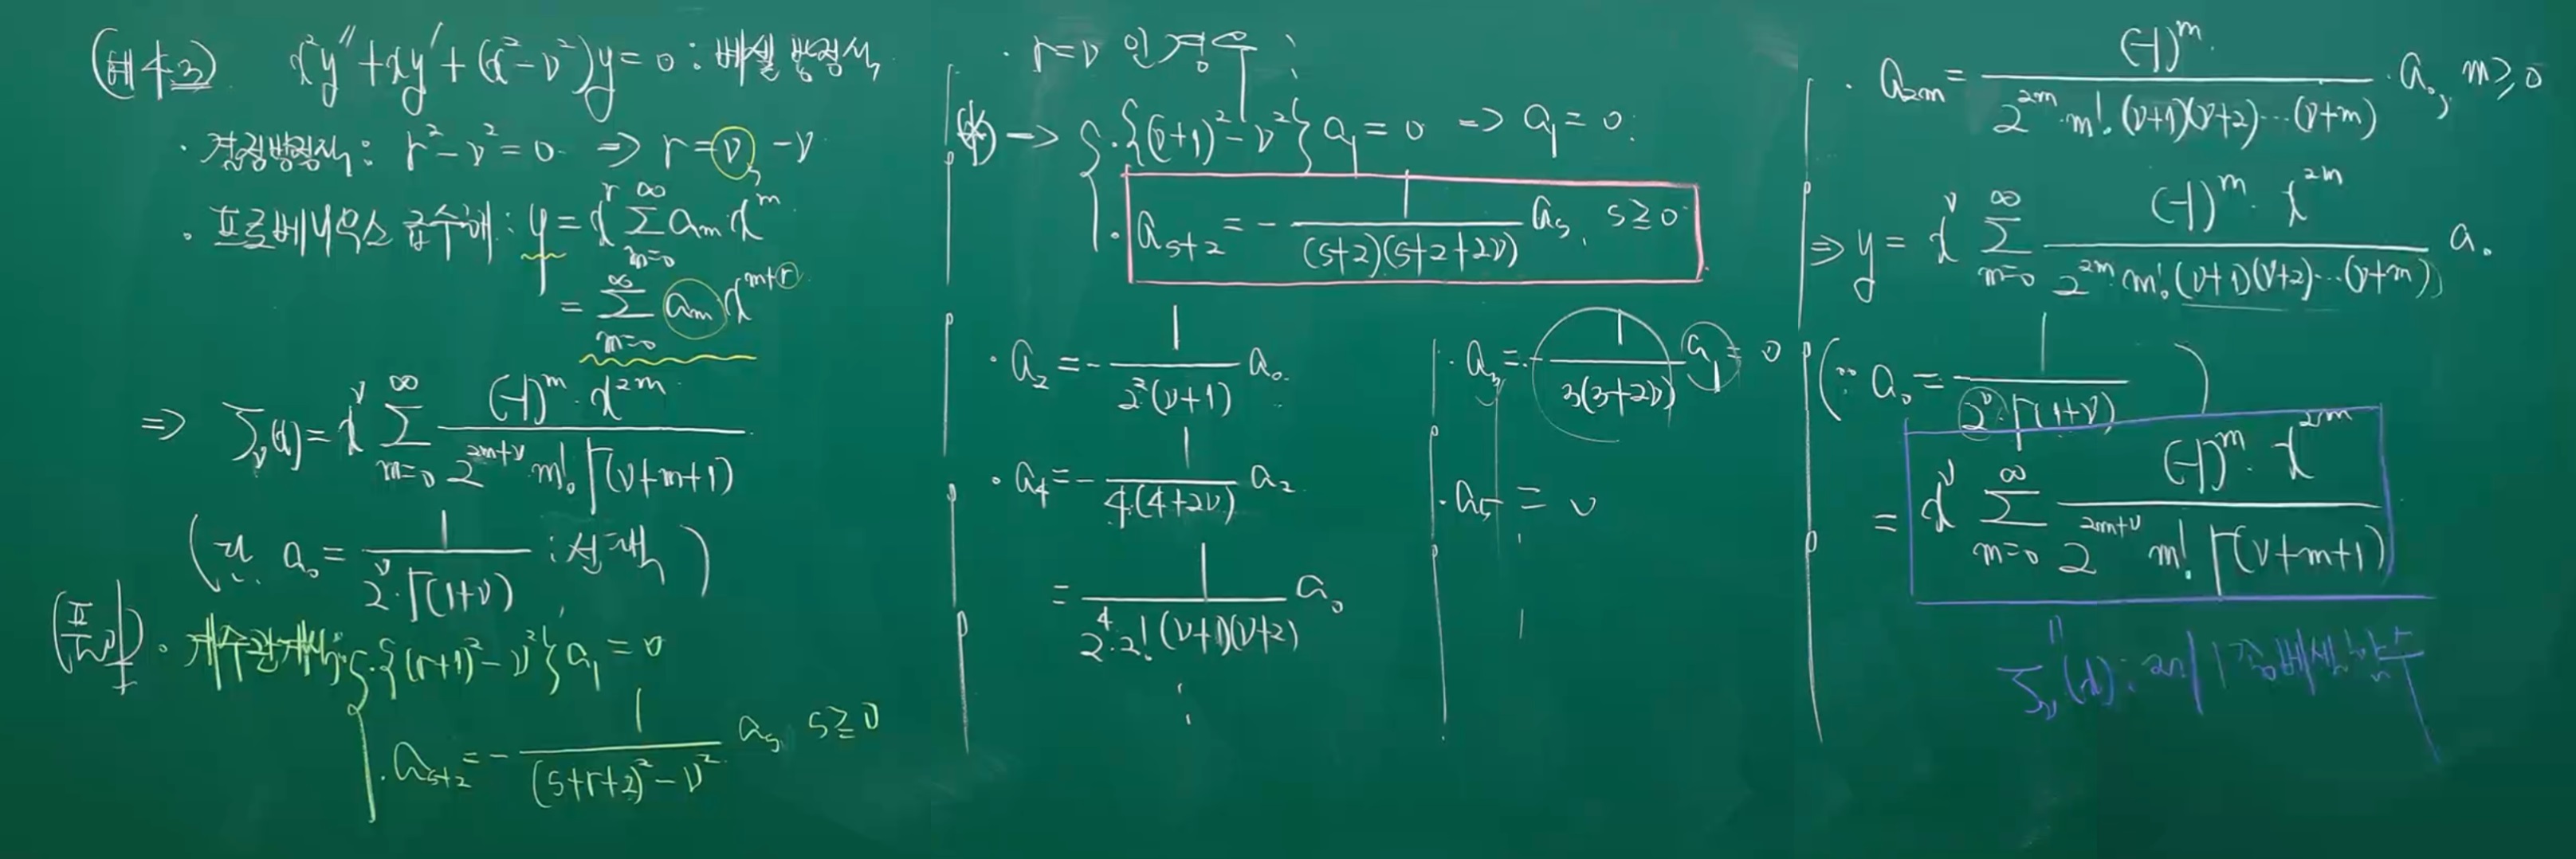 (예 4.3) x²y″ + xy′ + (x² − ν²)y = 0 : 베셀 방정식
· 결정방정식 : r² − ν² = 0 ⇒ r = ν, −ν
· 프로베니우스 급수해 : y = x^r ∑_{m=0}^{∞} a_m x^m
= ∑_{m=0}^{∞} a_m x^{m+r}
⇒ J_ν(x) = x^ν ∑_{m=0}^{∞} (−1)^m · x^{2m} / (2^{2m+ν} m! Γ(ν+m+1))
(단, a₀ = 1 / (2^ν · Γ(1+ν)) : 선택)
(풀이) · 계수관계식 : { · {(r+1)² − ν²} a₁ = 0
· a_{s+2} = − 1 / ((s+r+2)² − ν²) a_s, s ≥ 0
· r = ν 인 경우 ;
(*) → { · {(ν+1)² − ν²} a₁ = 0 ⇒ a₁ = 0.
· a_{s+2} = − 1 / ((s+2)(s+2+2ν)) a_s, s ≥ 0
· a₂ = − 1 / (2²(ν+1)) a₀
· a₄ = − 1 / (4·(4+2ν)) a₂
= 1 / (2⁴·2! (ν+1)(ν+2)) a₀
⋮
· a₃ = − 1 / (3(3+2ν)) a₁ = 0
· a₅ = 0
⋮
· a_{2m} = (−1)^m / (2^{2m} · m! · (ν+1)(ν+2)⋯(ν+m)) · a₀, m ≥ 0
⇒ y = x^ν ∑_{m=0}^{∞} (−1)^m · x^{2m} / (2^{2m} · m! (ν+1)(ν+2)⋯(ν+m)) a₀
(∵ a₀ = 1 / (2^ν · Γ(1+ν)))
= x^ν ∑_{m=0}^{∞} (−1)^m · x^{2m} / (2^{2m+ν} m! Γ(ν+m+1))
॥
J_ν(x) : 제1종 베셀함수